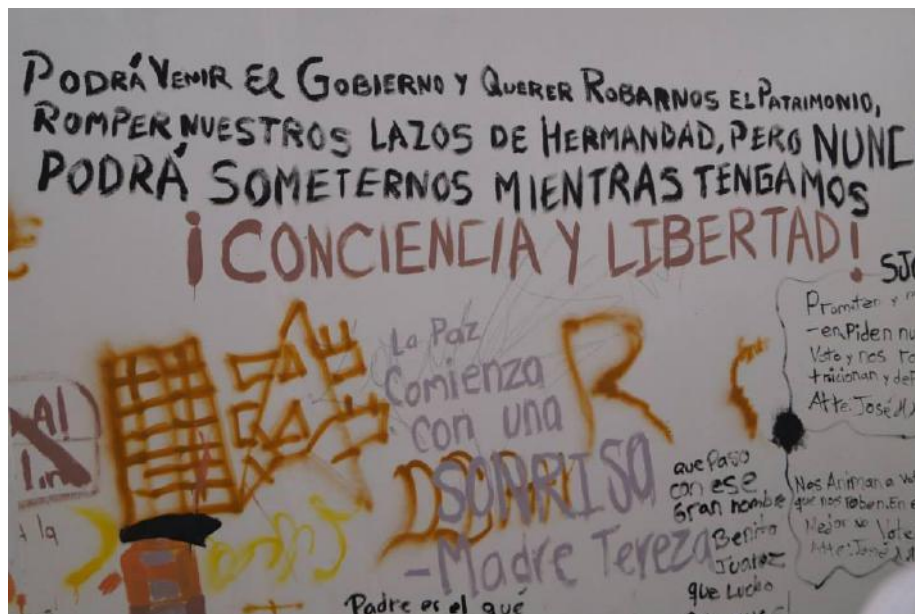 PODRÁ VENIR EL GOBIERNO Y QUERER ROBARNOS EL PATRIMONIO,
ROMPER NUESTROS LAZOS DE HERMANDAD, PERO NUNC
PODRÁ SOMETERNOS MIENTRAS TENGAMOS
¡CONCIENCIA Y LIBERTAD!
La Paz
Comienza
con una
SONRISA
-Madre Tereza
R
que Paso
con ese
Gran hombre
Benito
Juarez
que Lucho
Padre es el que
Prometen y
-en Piden nu
Voto y nos
tricionan y
Atte: José M
Nos Animan a Vo
que nos roben. En
Mejor no Vote
Atte: José
a la